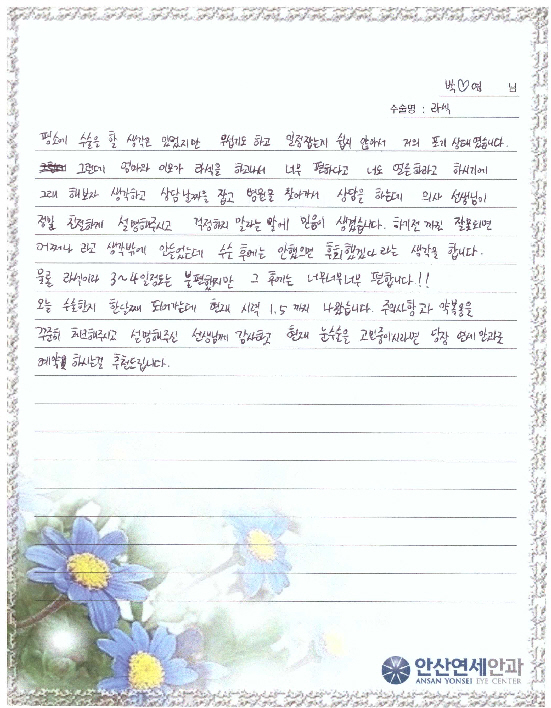 박♡영 님
수술명 : 라섹
평소에 수술을 할 생각은 있었지만 무섭기도 하고 일정잡는게 쉽지 않아서 거의 포기 상태였습니다.
그런데 엄마와 이모가 라섹을 하고나서 너무 편하다고 너도 얼른하라고 하시기에
그래 해보자 생각하고 상담날짜을 잡고 병원을 찾아가서 상담을 하는데 의사 선생님이
정말 친절하게 설명해주시고 걱정하지 말라는 말에 믿음이 생겼습니다. 하기전 까진 잘못되면
어쩌나 라고 생각밖에 안들었는데 수술 후에는 안했으면 후회했겠다 라는 생각을 합니다.
물론 라섹이라 3~4일정도는 불편했지만 그 후에는 너무너무너무 편합니다!!
오늘 수술한지 한달째 되어가는데 현재 시력 1.5 까지 나왔습니다. 주의사항과 약복용을
꾸준히 체크해주시고 설명해주신 선생님께 감사하고 현재 눈수술을 고민중이시라면 당장 연세안과로
예약 하시는걸 추천드립니다.
안산연세안과
ANSAN YONSEI EYE CENTER